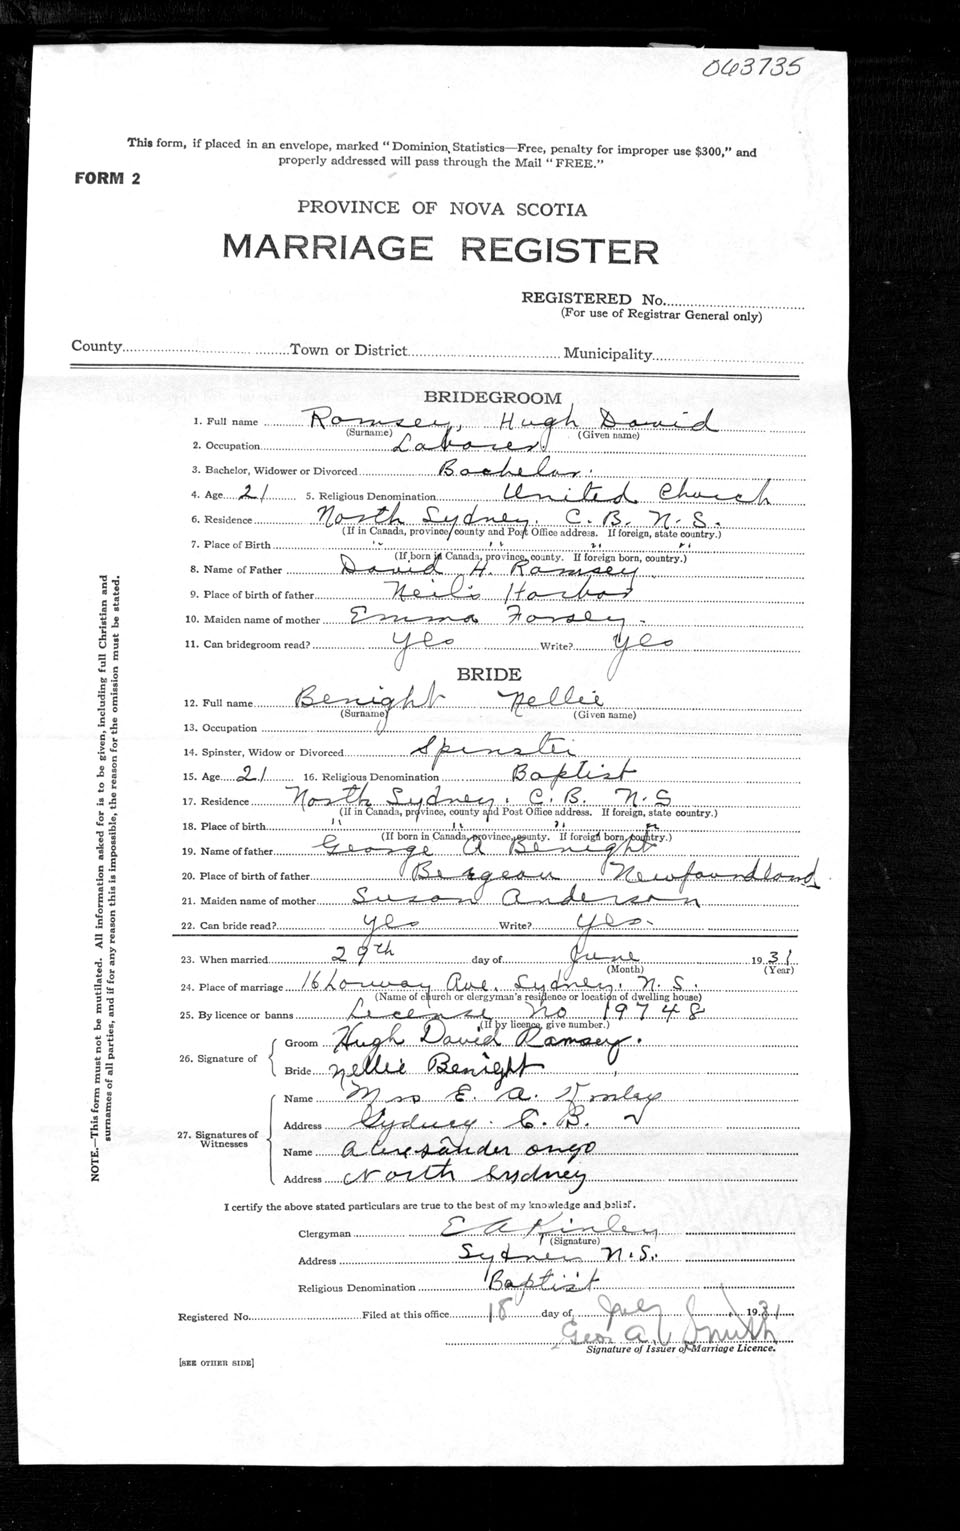 063735
This form, if placed in an envelope, marked "Dominion Statistics—Free, penalty for improper use $300," and
properly addressed will pass through the Mail "FREE."
FORM 2
PROVINCE OF NOVA SCOTIA
MARRIAGE REGISTER
REGISTERED No.
(For use of Registrar General only)
County Town or District Municipality
BRIDEGROOM
1. Full name Ramsey, Hugh David
(Surname) (Given name)
2. Occupation Laborer.
3. Bachelor, Widower or Divorced Bachelor.
4. Age 21 5. Religious Denomination United Church
6. Residence North Sydney. C. B. N. S.
(If in Canada, province, county and Post Office address. If foreign, state country.)
7. Place of Birth " " " "
(If born in Canada, province, county. If foreign born, country.)
8. Name of Father David H. Ramsey
9. Place of birth of father Neil's Harbor
10. Maiden name of mother Emma Forsey.
11. Can bridegroom read? Yes Write? Yes
BRIDE
12. Full name Benight Nellie
(Surname) (Given name)
13. Occupation
14. Spinster, Widow or Divorced Spinster
15. Age 21 16. Religious Denomination Baptist
17. Residence North Sydney. C. B. N. S
(If in Canada, province, county and Post Office address. If foreign, state country.)
18. Place of birth " " " "
(If born in Canada, province, county. If foreign born, country.)
19. Name of father George A Benight
20. Place of birth of father Burgeou Newfoundland
21. Maiden name of mother Susan Anderson
22. Can bride read? Yes Write? Yes.
23. When married 29th day of June 1931
(Month) (Year)
24. Place of marriage 16 Lorway Ave. Sydney. N. S.
(Name of church or clergyman's residence or location of dwelling house)
25. By licence or banns License No 19748
(If by licence, give number.)
26. Signature of
Groom Hugh David Ramsey.
Bride Nellie Benight
27. Signatures of Witnesses
Name Mrs E. A. Kinley
Address Sydney. C. B.
Name Alexsander
Address North Sydney
I certify the above stated particulars are true to the best of my knowledge and belief.
Clergyman E A Kinley
(Signature)
Address Sydney N. S.
Religious Denomination Baptist
Registered No. Filed at this office 18 day of July 1931
Geo. A. Smith
Signature of Issuer of Marriage Licence.
[SEE OTHER SIDE]
NOTE.—This form must not be mutilated. All information asked for is to be given, including full Christian and
surnames of all parties, and if for any reason this is impossible, the reason for the omission must be stated.